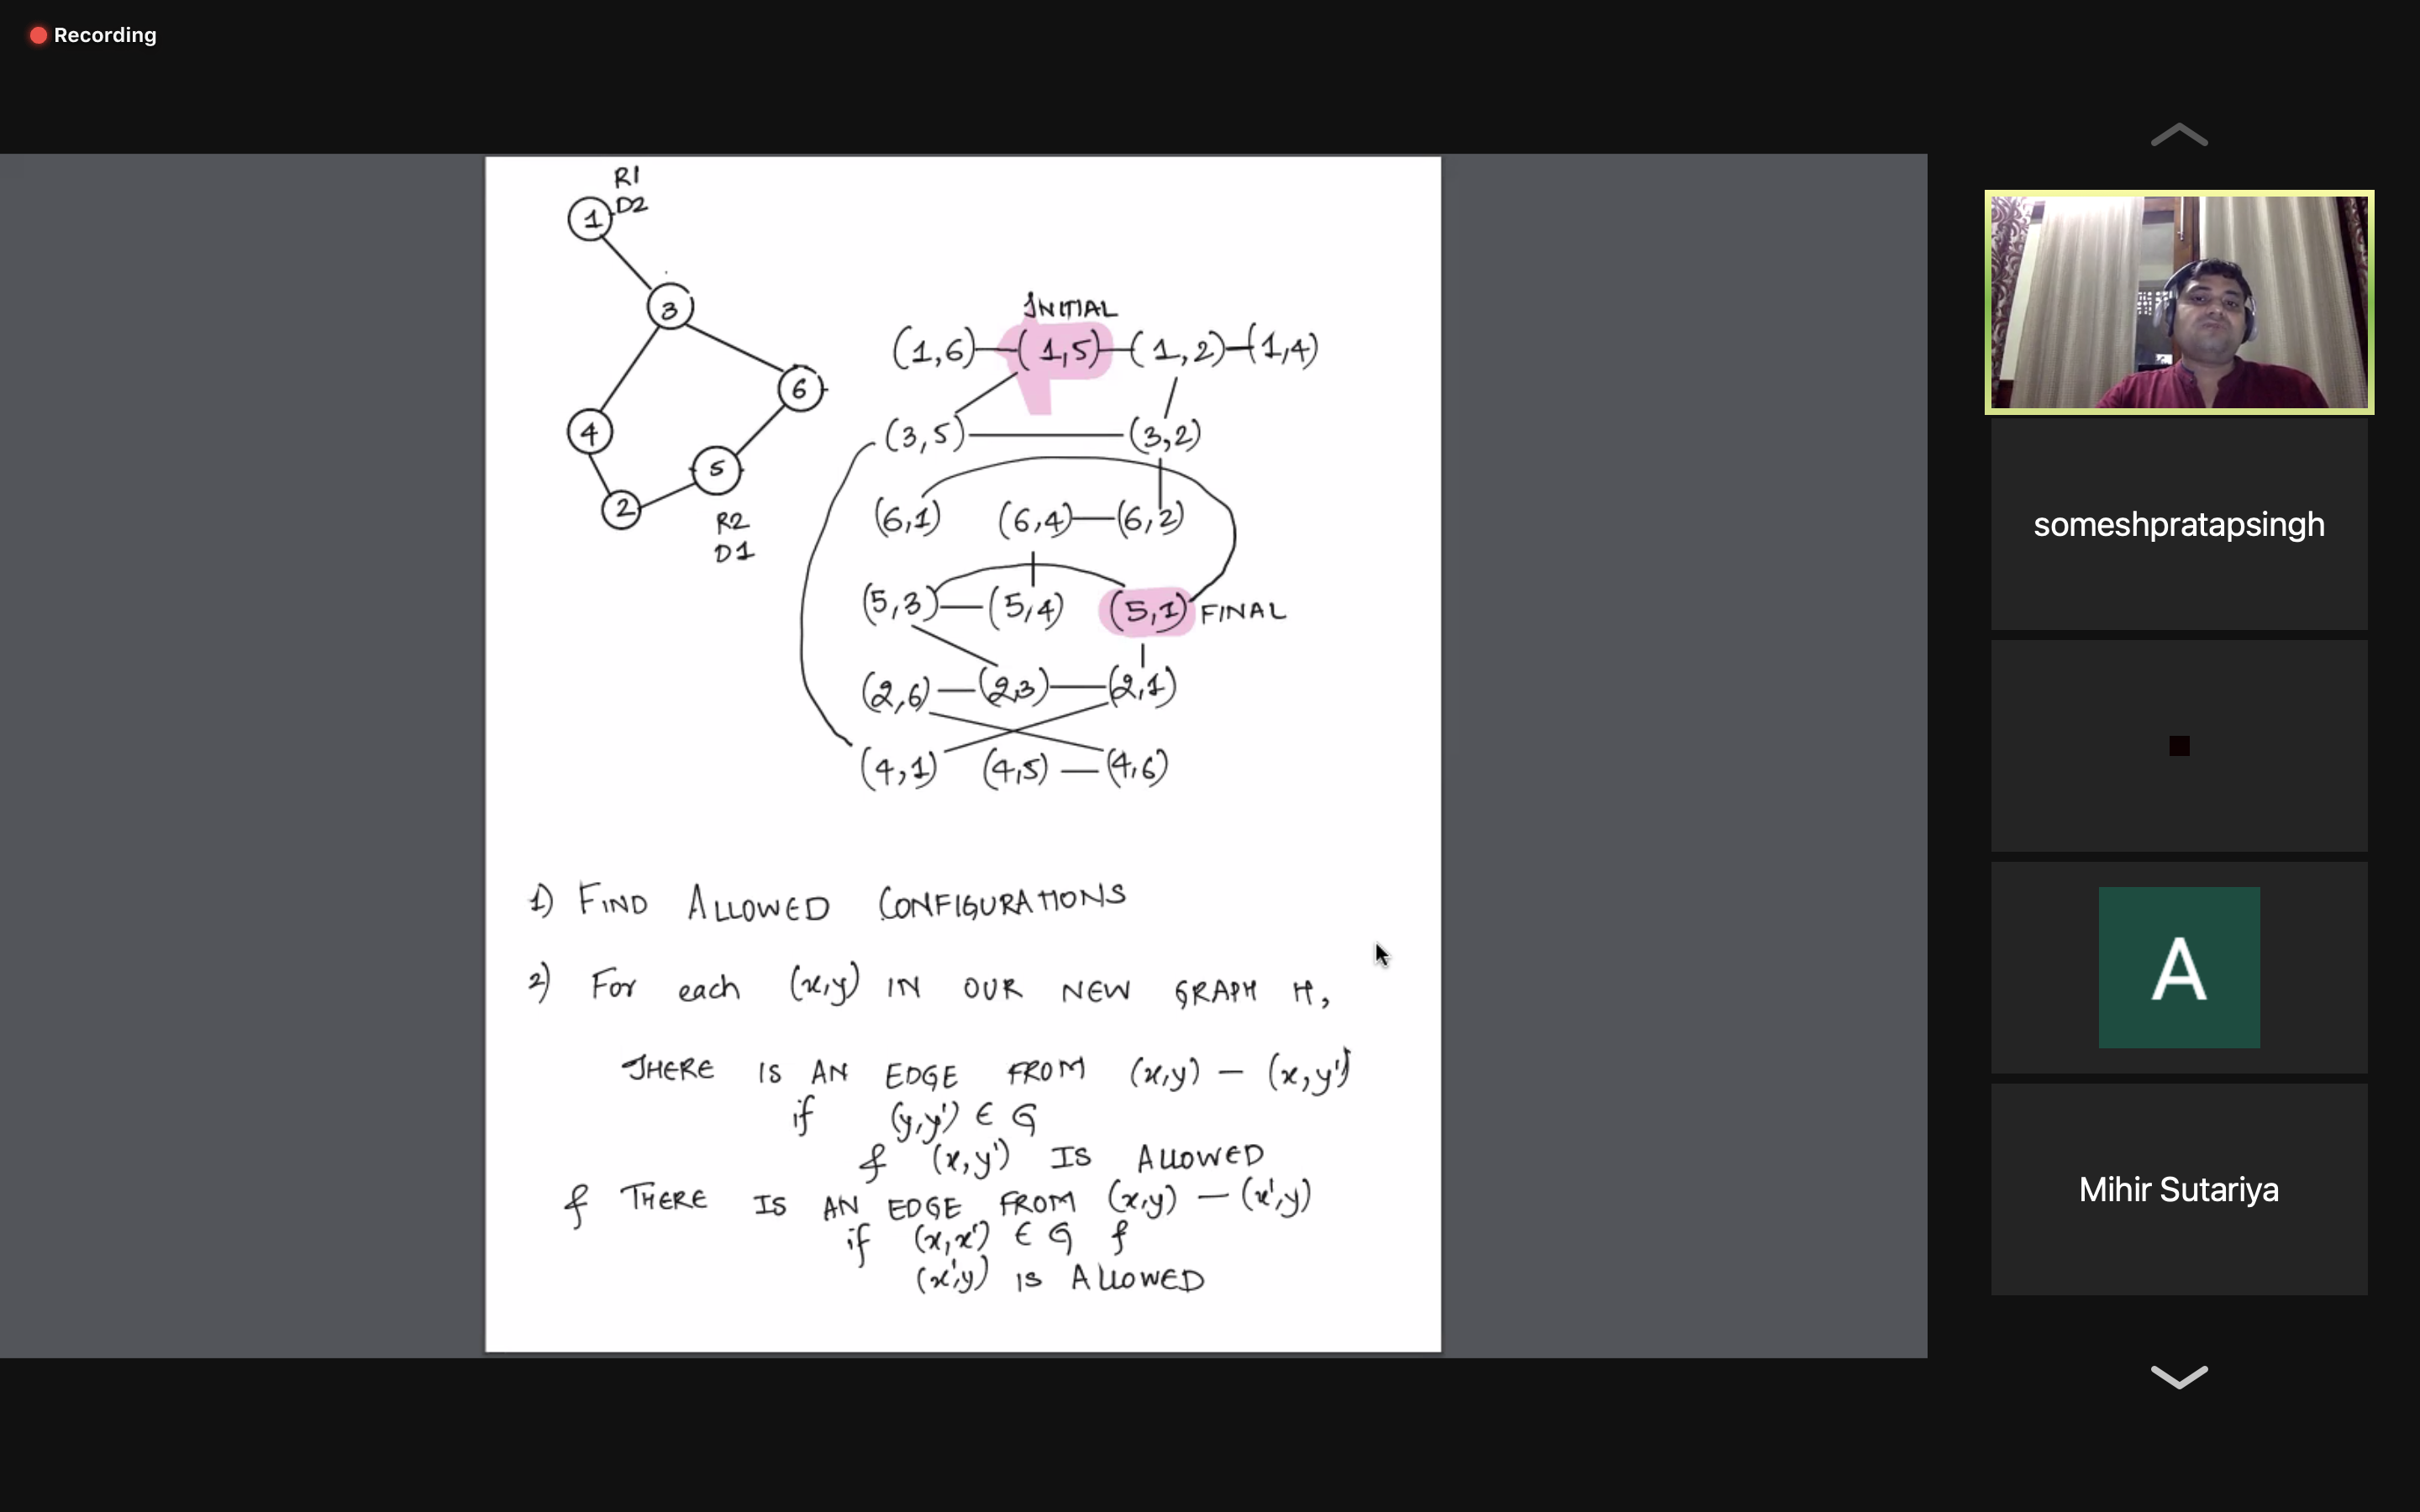 Recording
R1
D2
1
3
6
4
5
2
R2
D1
INITIAL
(1,6) — (1,5) — (1,2) — (1,4)
(3,5) — (3,2)
(6,1) (6,4) — (6,2)
(5,3) — (5,4) (5,1) FINAL
(2,6) — (2,3) — (2,1)
(4,1) (4,5) — (4,6)
1) FIND ALLOWED CONFIGURATIONS
2) For each (x,y) IN OUR NEW GRAPH H,
THERE IS AN EDGE FROM (x,y) — (x,y')
if (y,y') ∈ G
& (x,y') IS ALLOWED
& THERE IS AN EDGE FROM (x,y) — (x',y)
if (x,x') ∈ G &
(x',y) IS ALLOWED
someshpratapsingh
A
Mihir Sutariya